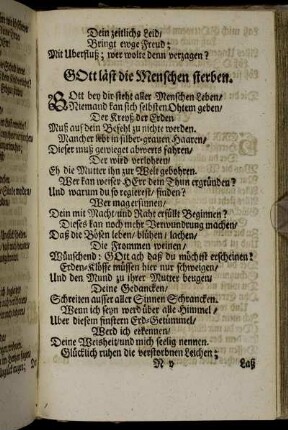 Dein zeitlichs Leid/
Bringt ewge Freud;
Mit Uberfluß; wer wolte denn verzagen?
GOtt läst die Menschen sterben.
GOtt bey dir steht aller Menschen Leben/
Niemand kan sich selbsten Othem geben/
Der Kreyß der Erden
Muß auf dein Befehl zu nichte werden.
Mancher lebt in silber-grauen Haaren/
Dieser muß zewieget abwerts fahren/
Der wird verlohren/
Eh die Mutter ihn zur Welt gebohren.
Wer kan weiser HErr dein Thun ergründen?
Und warum du so regierst/ finden?
Wer mag ersinnen/
Dein mit Macht und Raht erfüllt Beginnen?
Dieses kan noch mehr Verwundrung machen/
Daß die Bösen leben/ blühen/ lachen/
Die Frommen weinen/
Wünschend: GOtt ach daß du möchst erscheinen!
Erden-Klösse müssen hier nur schweigen/
Und den Mund zu ihrer Mutter beugen/
Deine Gedancken/
Schreiten ausser aller Sinnen Schrancken.
Wenn ich seyn werd über alle Himmel/
Uber diesem finstern Erd-Getümmel/
Werd ich erkennen/
Deine Weisheit/und mich seelig nennen.
Glücklich ruhen die verstorbnen Leichen;
N y Laß